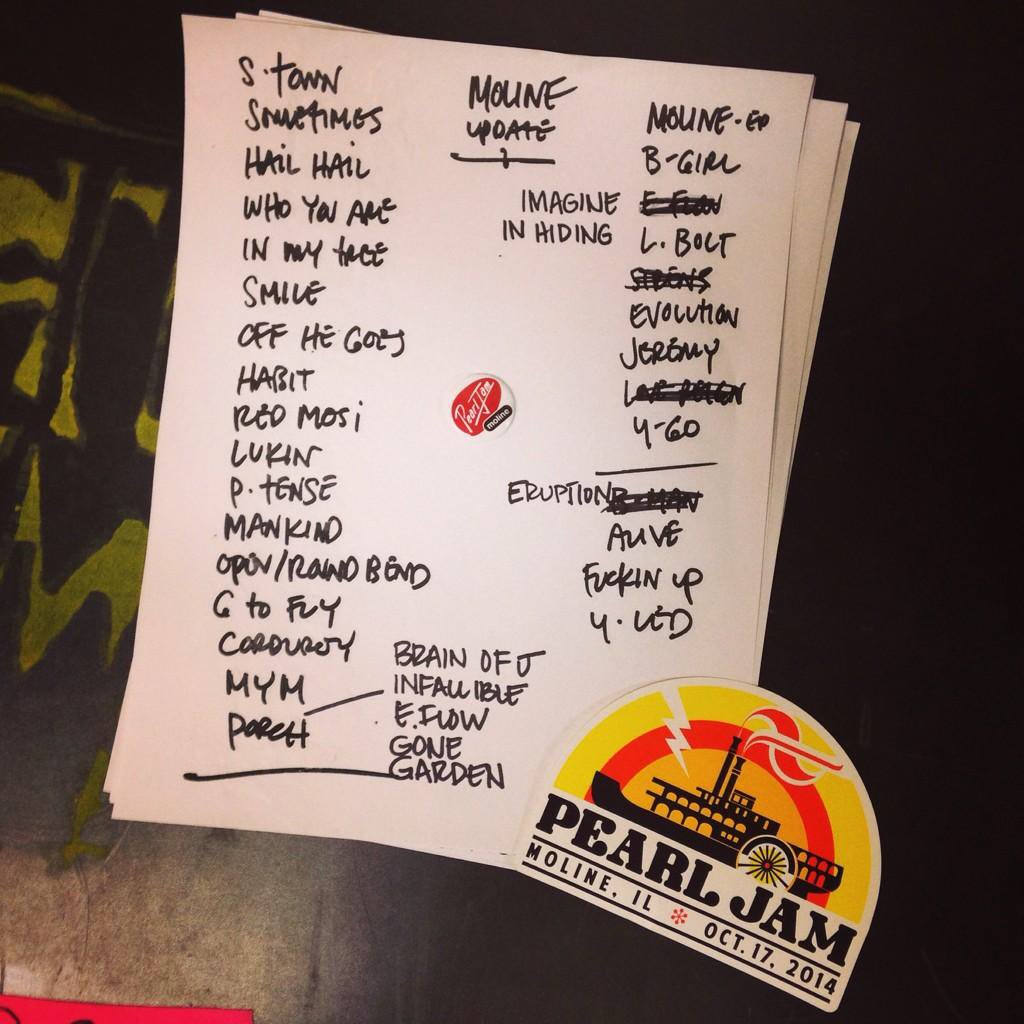 S. TOWN
SOMETIMES
HAIL HAIL
WHO YOU ARE
IN MY TREE
SMILE
OFF HE GOES
HABIT
RED MOSi
LUKIN
P. TENSE
MANKIND
OPEN/ROUND BEND
G to FLY
CORDUROY
MYM
PORCH
BRAIN OF J
INFALLIBLE
E. FLOW
GONE
GARDEN
MOLINE
UPDATE
Pearl Jam
moline
MOLINE-EO
B-GIRL
IMAGINE E FLOW
IN HIDING L. BOLT
SIRENS
EVOLUTION
JEREMY
LOVE REIGN
4-GO
ERUPTION B-MAN
ALIVE
FUCKIN UP
Y. LED
PEARL JAM
MOLINE, IL * OCT. 17, 2014